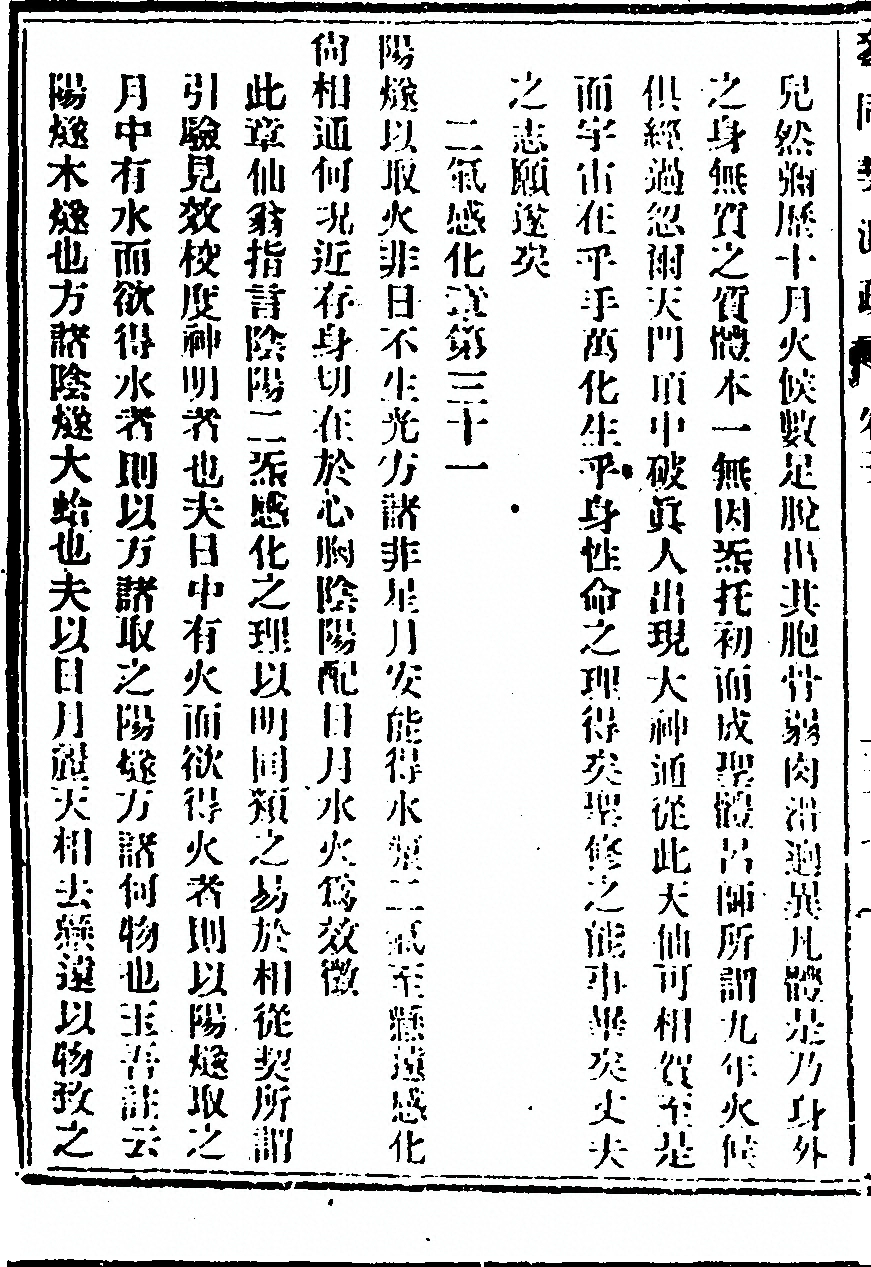 兒然彌歷十月火候數足脫出其胞骨弱肉滑逈異凡體是乃身外
之身無質之質體本一無因炁托初而成聖體呂師所謂九年火候
俱經過忽爾天門頂中破眞人出現大神通從此天仙可相賀至是
而宇宙在乎手萬化生乎身性命之理得矣聖修之能事畢矣丈夫
之志願遂矣
二氣感化章第三十一
陽燧以取火非日不生光方諸非星月安能得水漿二氣至懸遠感化
尙相通何况近存身切在於心胸陰陽配日月水火爲效徵
此章仙翁指言陰陽二炁感化之理以明同類之易於相從契所謂
引驗見效校度神明者也夫日中有火而欲得火者則以陽燧取之
月中有水而欲得水者則以方諸取之陽燧方諸何物也王吾註云
陽燧木燧也方諸陰燧大蛤也夫以日月麗天相去懸遠以物致之